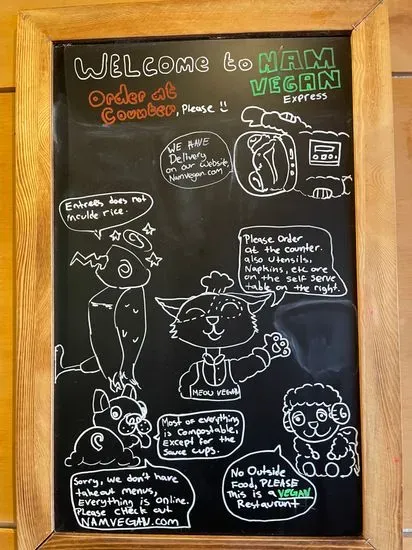 WELCOME to NAM
VEGAN
Express
Order at
Counter, Please
WE HAVE
Delivery
on our website,
Namvegan.com
Entrees does not
inculde rice.
Please Order
at the counter.
also utensils,
Napkins, etc are
on the self serve
table on the right.
MEOW VEGAN
Most of everything
is compostable,
Except for the
sauce cups.
Sorry, we don't have
takeout menus,
Everything is online.
Please check out
NAMVEGAN.com
No Outside
Food, PLEASE
This is a VEGAN
Restaurant